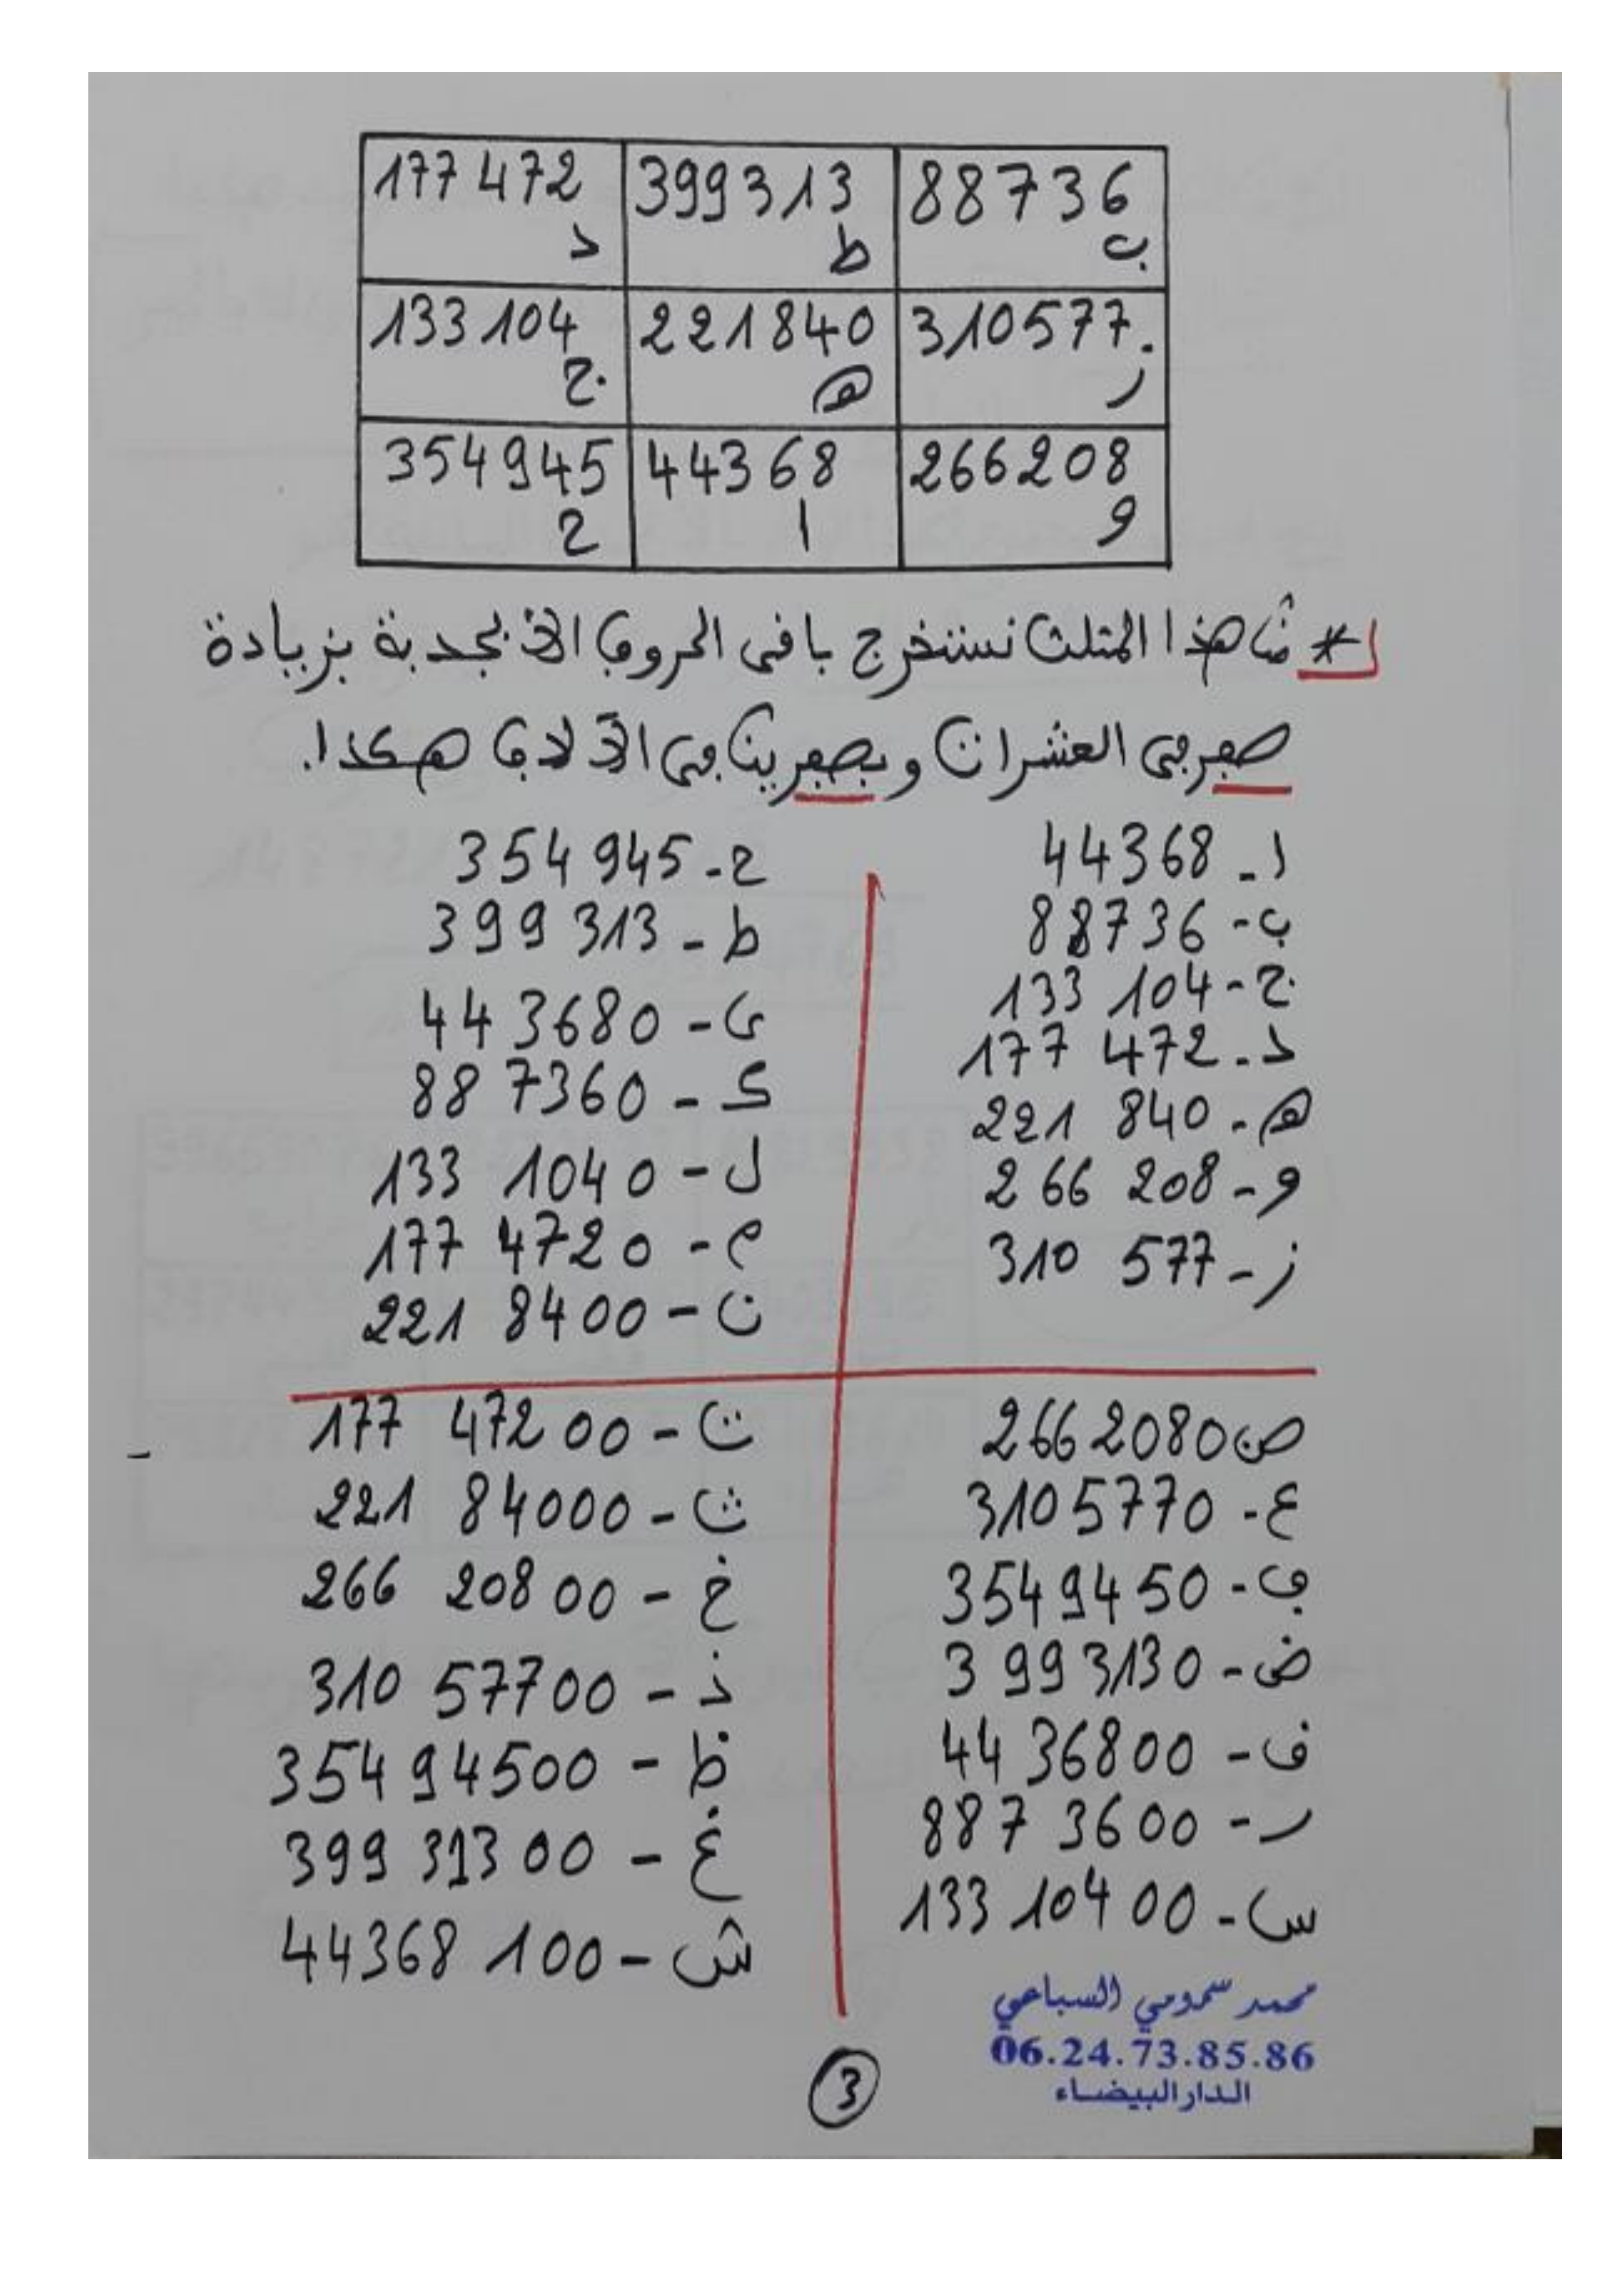 88736 399313 177472
ب ط د
310577. 221840 133104
ر ه ج
266208 44368 354945
و ا ح
* من هذا المثلث نستخرج باقي الحروف الأبجدية بزيادة
صفر في العشرات وبصفرين في الآلاف هكذا.
ا - 44368
ب - 88736
ج - 133 104
د - 177 472
ه - 221 840
و - 266 208
ز - 310 577
ح - 354 945
ط - 399 313
ى - 44 3680
ك - 88 7360
ل - 133 1040
م - 177 4720
ن - 221 8400
ص 266 2080
ع - 3105770
ڢ - 3549450
ض - 3 993130
ف - 44 36800
ر - 887 3600
س - 133 10400
ت - 177 47200
ث - 221 84000
خ - 266 20800
ذ - 310 57700
ظ - 354 94500
غ - 399 31300
ش - 44368 100
محمد سمومي السباعي
06.24.73.85.86
الدار البيضاء
3